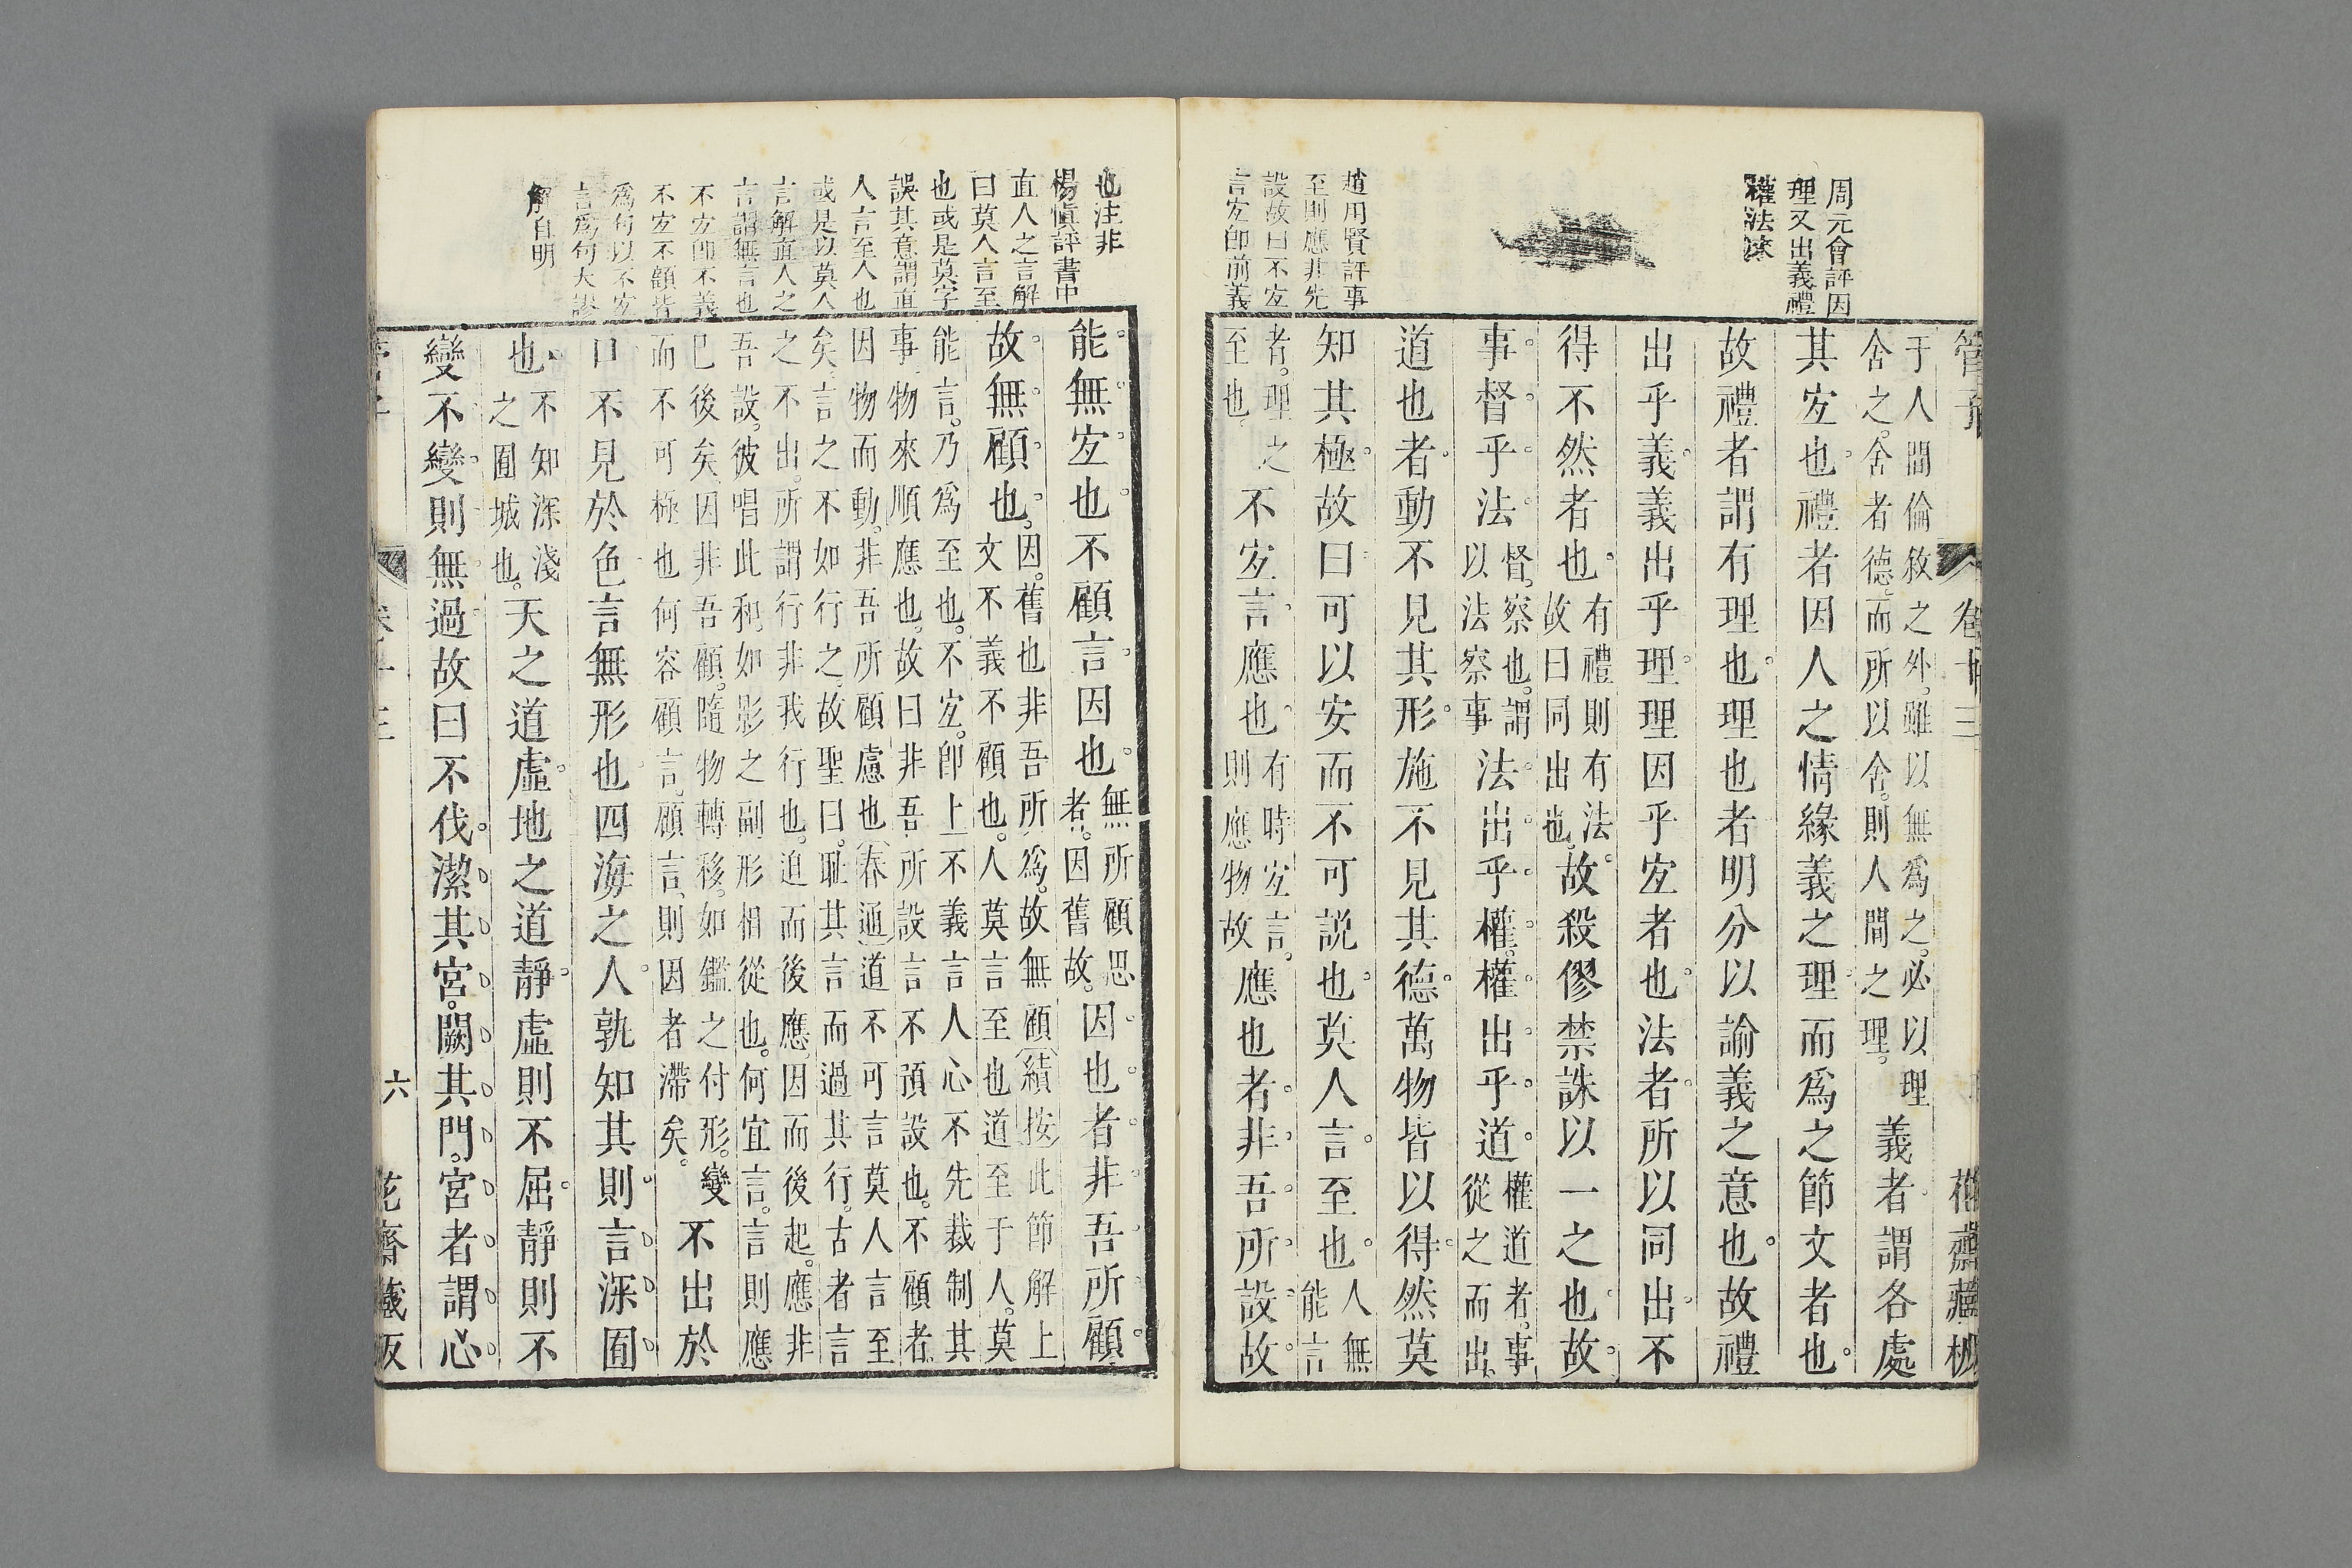 周元會評因
理又出義禮
權法來
趙用賢評事
至則應非先
設故曰不宐
言宐卽前義
管子
卷十三
花齋藏板
于人間倫敘之外雖以無爲之必以理
舍之舍者德而所以舍則人間之理
義者謂各處
其宐也禮者因人之情緣義之理而爲之節文者也
故禮者謂有理也理也者明分以諭義之意也故禮
出乎義義出乎理理因乎宐者也法者所以同出不
得不然者也
有禮則有法
故曰同出也
故殺僇禁誅以一之也故
事督乎法
督察也謂
以法察事
法出乎權權出乎道
權道者事
從之而出
道也者動不見其形施不見其德萬物皆以得然莫
知其極故曰可以安而不可説也莫人言至也
人無
能言
者理之
至也
不宐言應也
有時宐言
則應物故
應也者非吾所設故
也注非
楊愼評書中
直人之言解
曰莫人言至
也或是莫字
誤其意謂直
人言至人也
或是以莫人
言解直人之
言謂無言也
不宐卽不義
不宐不顧皆
爲句以不宐
言爲句大謬
解自明
能無宐也不顧言因也
無所顧思
者因舊故
因也者非吾所顧
故無顧也
因舊也非吾所爲故無顧(績按)此節解上
文不義不顧也人莫言至也道至于人莫
能言乃爲至也不宐卽上不義言人心不先裁制其
事物來順應也故曰非吾所設言不預設也不顧者
因物而動非吾所顧慮也(春通)道不可言莫人言至
矣言之不如行之故聖曰耻其言而過其行古者言
之不出所謂行非我行也迫而後應因而後起應非
吾設彼唱此和如影之副形相從也何宜言言則應
已後矣因非吾顧隨物轉移如鑑之付形變
而不可極也何容顧言顧言則因者滯矣
不出於
口不見於色言無形也四海之人孰知其則言深囿
也
不知深淺
之囿城也
天之道虛地之道靜虛則不屈靜則不
變不變則無過故曰不伐潔其宮闕其門宮者謂心
六
花齋藏板